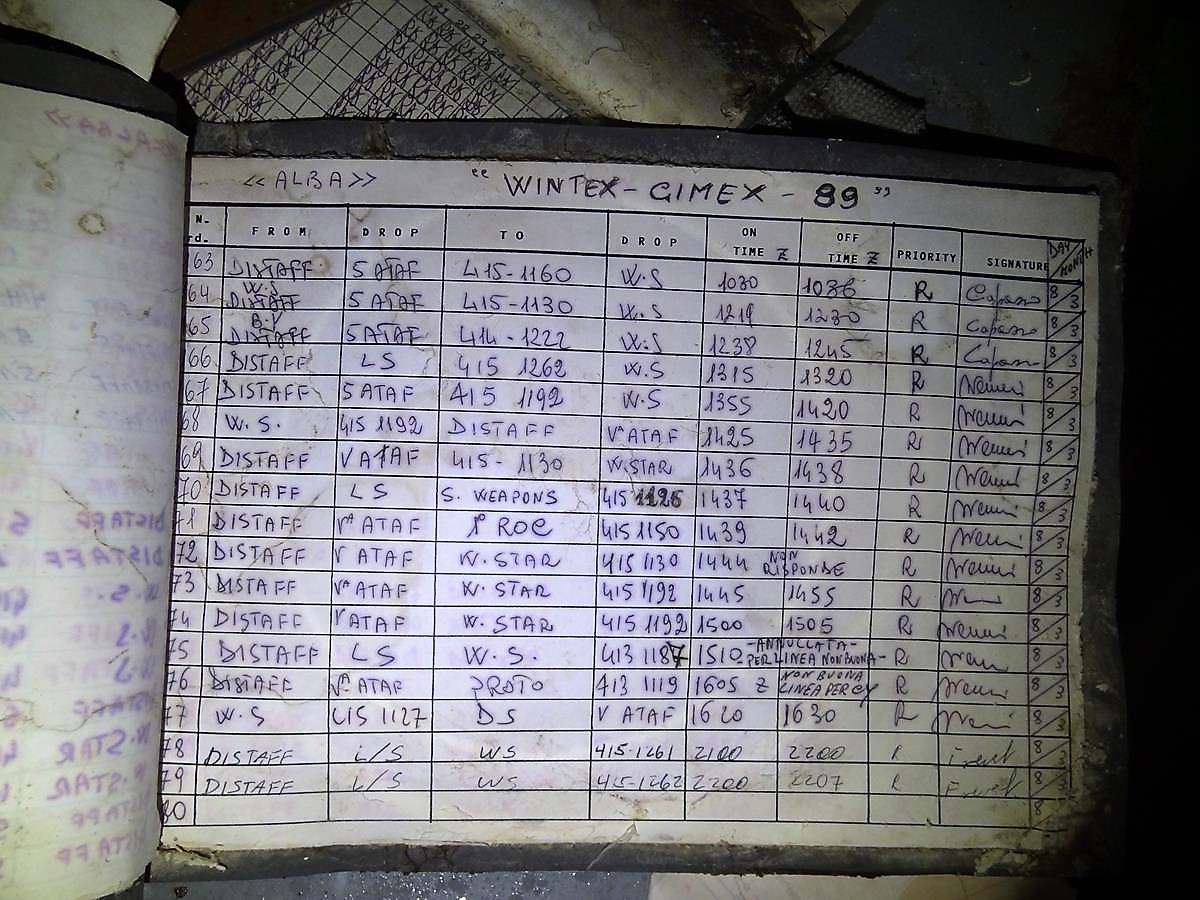 <<ALBA>> " WINTEX - CIMEX - 89 "
N. rd. FROM DROP TO DROP ON TIME Z OFF TIME Z PRIORITY SIGNATURE DAY/MONTH
63 DISTAFF 5 ATAF 415-1160 W.S 1030 1036 R Capasso 8/3
64 W.S DISTAFF 5 ATAF 415-1130 W.S 1219 1230 R Capasso 8/3
65 B.V DISTAFF 5 ATAF 414-1222 W.S 1238 1245 R Capasso 8/3
66 DISTAFF LS 415 1262 W.S 1315 1320 R 8/3
67 DISTAFF 5 ATAF 415 1192 W.S 1355 1420 R 8/3
68 W.S. 415 1192 DISTAFF Vª ATAF 1425 1435 R 8/3
69 DISTAFF V ATAF 415-1130 W.STAR 1436 1438 R 8/3
70 DISTAFF LS S. WEAPONS 415 1126 1437 1440 R 8/3
71 DISTAFF Vª ATAF 1º ROC 415 1150 1439 1442 R 8/3
72 DISTAFF V ATAF W. STAR 415 1130 1444 NON RISPONDE R 8/3
73 DISTAFF Vª ATAF W. STAR 415 1192 1445 1455 R 8/3
74 DISTAFF V ATAF W. STAR 415 1192 1500 1505 R 8/3
75 DISTAFF LS W.S. 413 1187 1510 -ANNULLATA- PER LINEA NON BUONA- R 8/3
76 DISTAFF Vª ATAF PROTO 413 1119 1605 Z NON BUONA LINEA PER CY R 8/3
77 W.S 415 1127 DS V ATAF 1620 1630 R 8/3
78 DISTAFF L/S WS 415-1261 2100 2200 R 8/3
79 DISTAFF L/S WS 415-1262 2200 2207 R 8/3
80 8/3